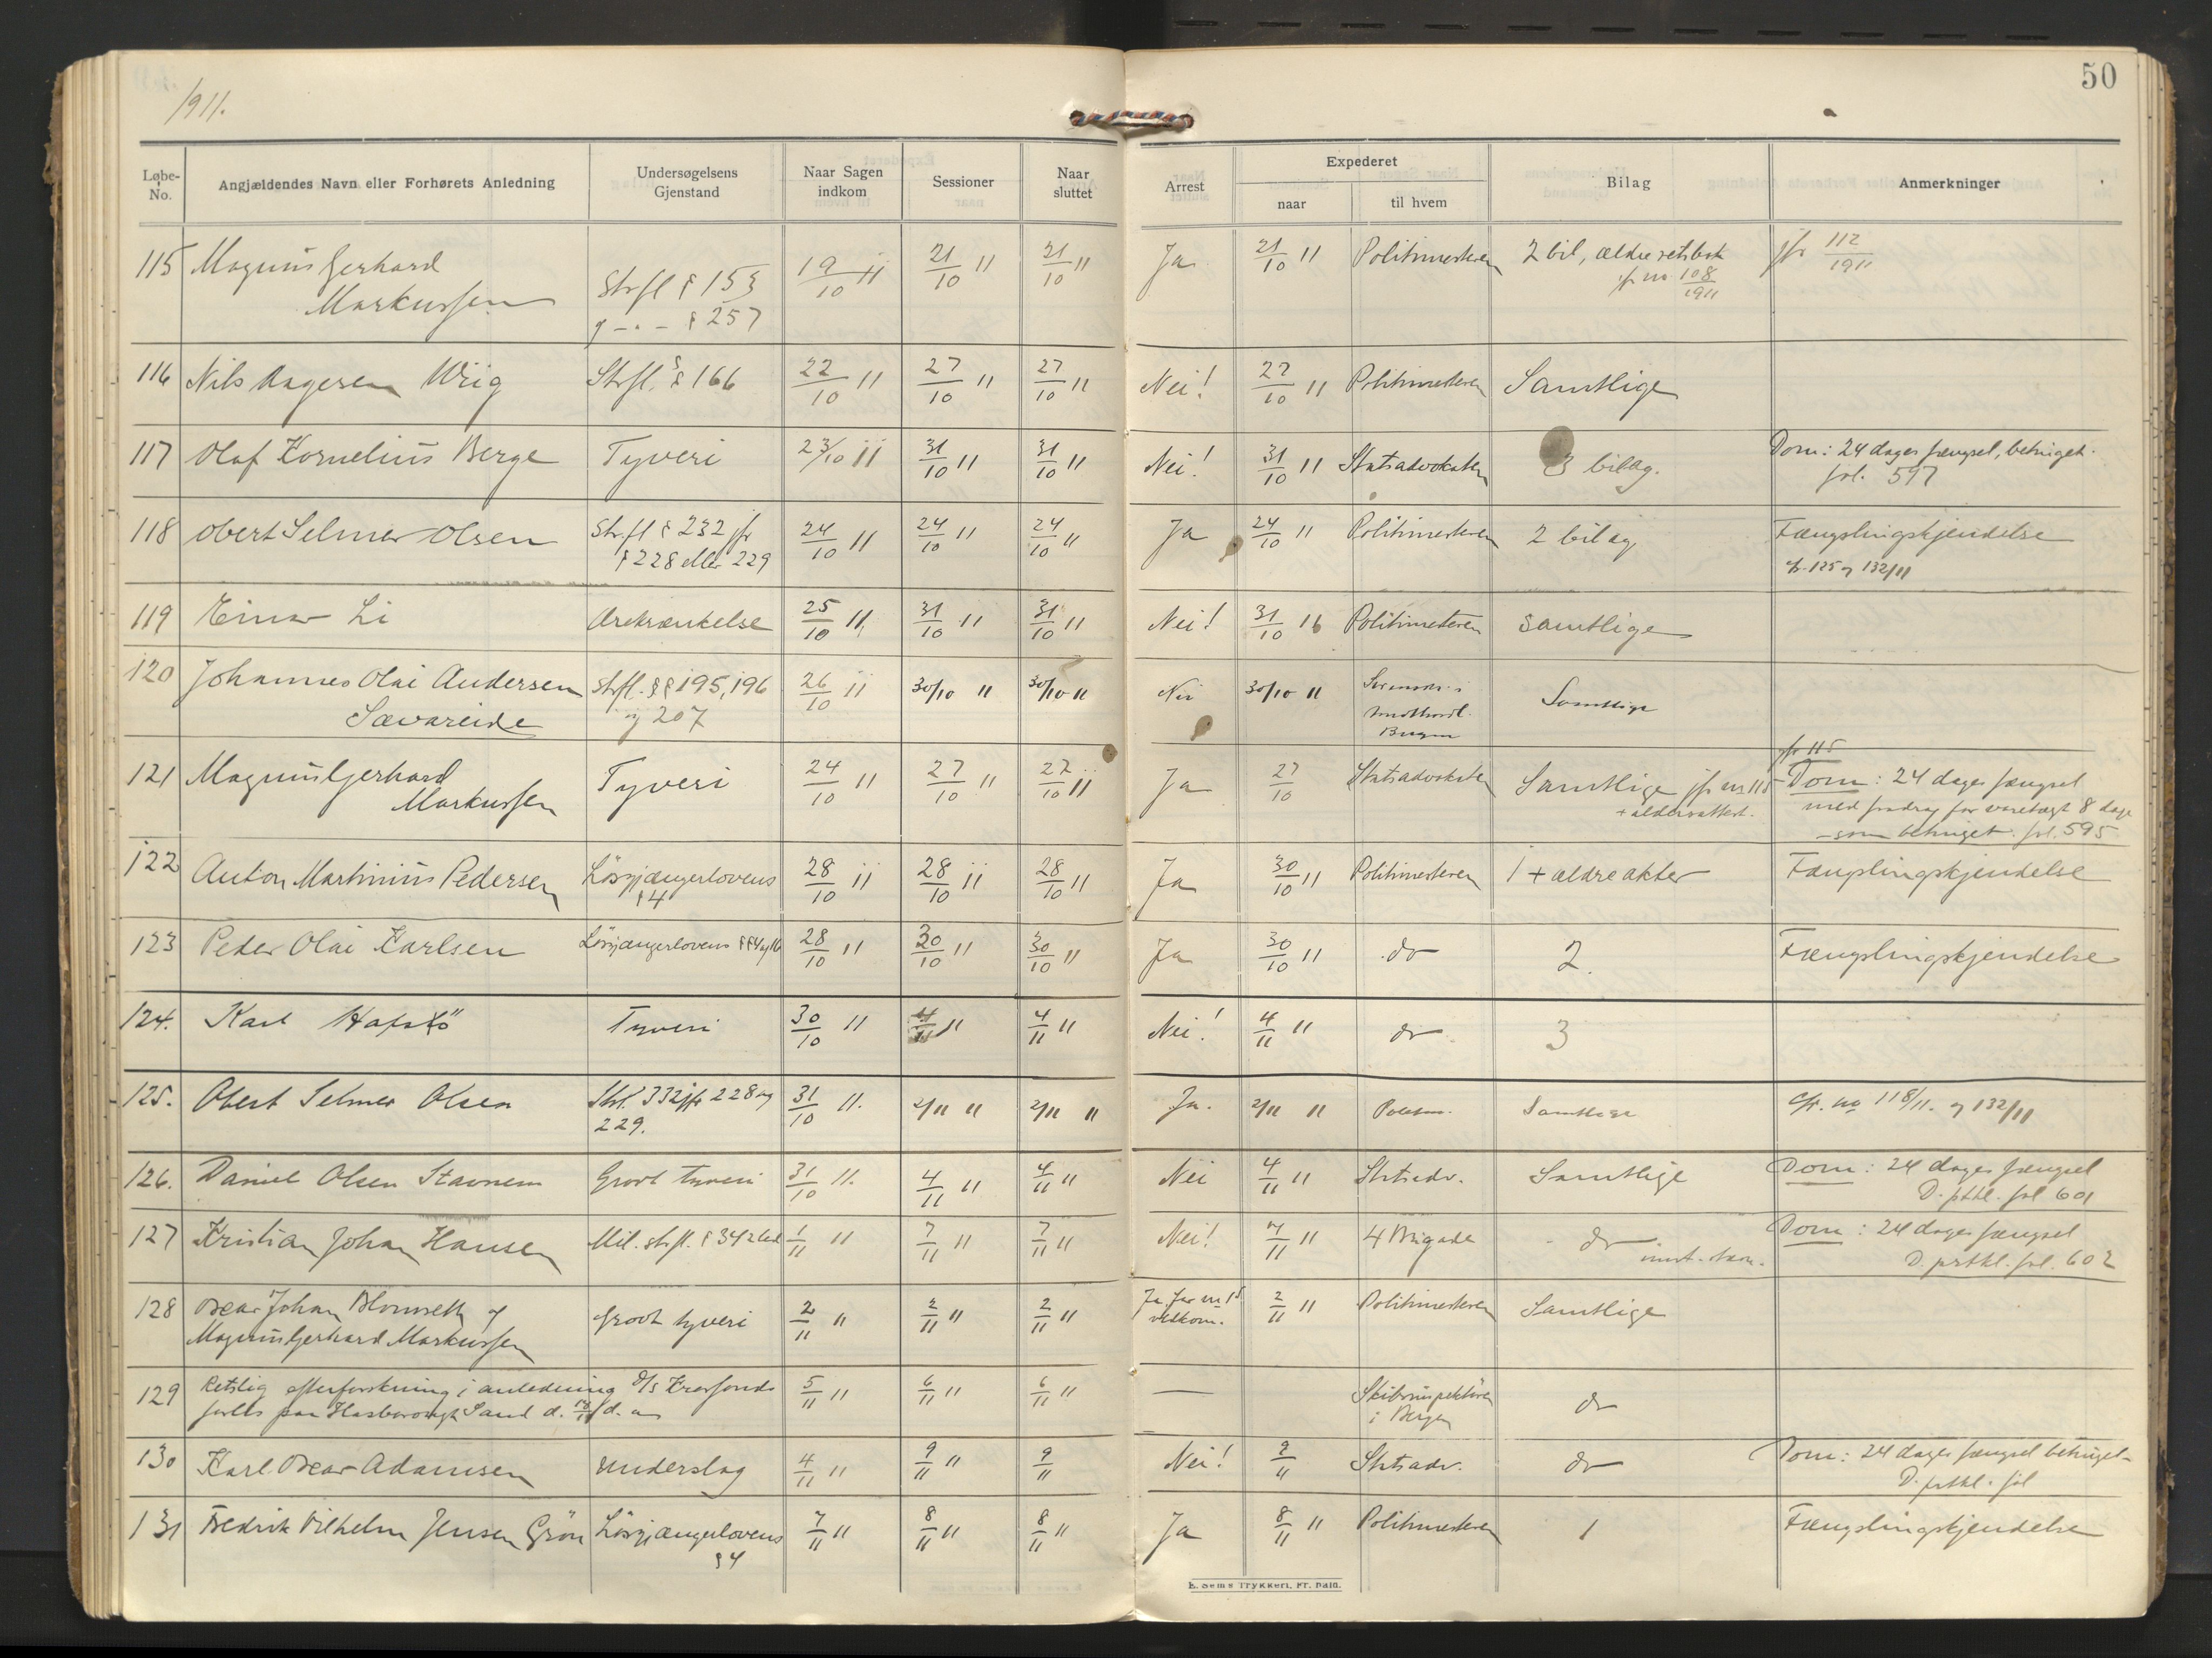 50
1911.
Løbe-No. Angjældendes Navn eller Forhørets Anledning Undersøgelsens Gjenstand Naar Sagen indkom Sessioner Naar sluttet Arrest Expederet naar til hvem Bilag Anmerkninger
115 Magnus Gerhard Strfl § 153 19/10 11 21/10 11 21/10 11 Ja 21/10 11 Politimesteren 2 bil, ældre retsbok jfr 112/1911
Markussen g - " - § 257 jfr no 108/1911
116 Nils Aagesen Wiig Strfl. § 166 22/10 11 27/10 11 27/10 11 Nei! 27/10 11 Politimesteren Samtlige
117 Olaf Kornelius Berge Tyveri 23/10 11 31/10 11 31/10 11 Nei! 31/10 11 Statsadvokaten 3 bilag. Dom: 24 dages fængsel, betinget.
fol. 597
118 Obert Selmer Olsen Strfl § 232 jfr 24/10 11 24/10 11 24/10 11 Ja 24/10 11 Politimesteren 2 bilag Fængslingskjendelse
§ 228 eller 229 cfr. 125 og 132/11
119 Einar Li Ærekrænkelse 25/10 11 31/10 11 31/10 11 Nei! 31/10 11 Politimesteren Samtlige
120 Johannes Olai Andersen Strfl. §§ 195, 196 26/10 11 30/10 11 30/10 11 Nei 30/10 11 Sorenskr. i Samtlige
Sævareide og 207 Midthordl.
Bergen
121 Magnus Gerhard Tyveri 24/10 11 27/10 11 27/10 11 Ja 27/10 Statsadvokaten Samtlige jfr nr 115 jfr 115
Markussen + aldersattest. Dom: 24 dages fængsel
med fradrag for varetægt 8 dage
- som betinget. fol. 595
122 Anton Martinius Pedersen Lösgjængerlovens 28/10 11 28/10 11 28/10 11 Ja 30/10 11 Politimesteren 1 + ældre akter Fængslingskjendelse
§ 4
123 Peder Olai Karlsen Lösgjængerlovens §§ 4 og 16 28/10 11 30/10 11 30/10 11 Ja 30/10 11 do 2. Fængslingskjendelse
124. Karl Tyveri 30/10 11 4/11 11 4/11 11 Nei! 4/11 11 do 3
125. Obert Selmer Olsen Strl. 332 jfr 228 og 31/10 11. 2/11 11 2/11 11 Ja. 2/11 11 Politim. Samtlige Cfr. no 118/11. og 132/11
229.
126. Daniel Olsen Stavnem Grovt tyveri 31/10 11. 4/11 11 4/11 11 Nei 4/11 11 Statsadv. Samtlige Dom: 24 dages fængsel
D. ptkl. fol 601
127 Kristian Johan Hansen Mil. strfl. § 34 2 led 1/11 11 7/11 11 7/11 11 Nei! 7/11 11 4 Brigade do Dom: 24 dages fængsel
D. prtkl. fol. 602
128 Oscar Johan Blomseth og Grovt tyveri 2/11 11 2/11 11 2/11 11 Ja for m 2/11 11 Politimesteren Samtlige
Magnus Gerhard Markussen vedkom.
129 Retslig efterforskning i anledning D/s 5/11 11 6/11 11 6/11 11 — Skibsinspektören do
forlis paa Hasborough Sand d. d. a i Bergen
130 Karl Oscar Adamsen Underslag 4/11 11 9/11 11 9/11 Nei! 9/11 Statsadv. do Dom: 24 dages fængsel betinget
D. prtkl. fol
131 Fredrik Vilhelm Jensen Grön Lösgjængerlovens 7/11 11 8/11 11 8/11 11 Ja 8/11 11 Politimesteren 1 Fængslingskjendelse
§ 4
E. Sems Trykkeri, Fr.hald.